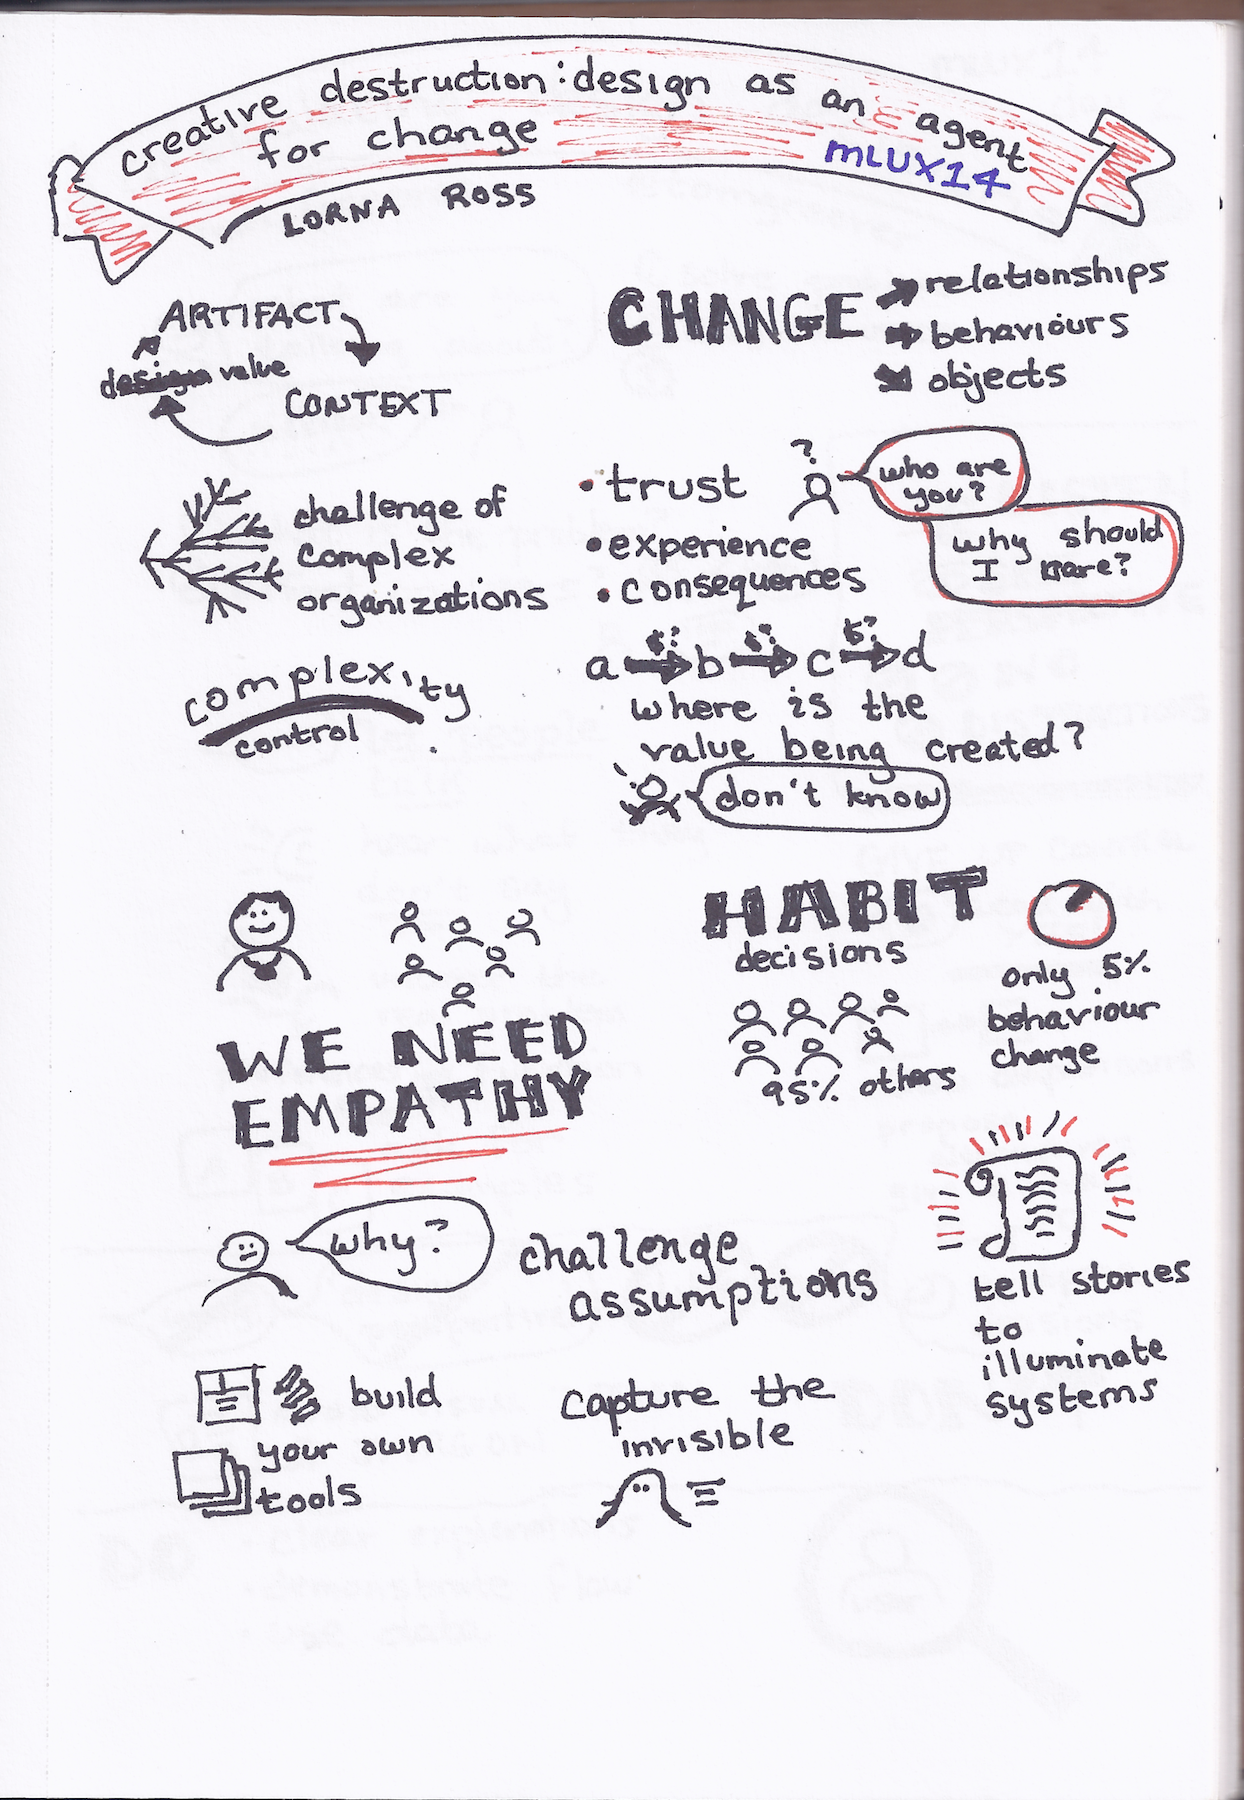 creative destruction: design as an agent
for change
mLUX14
LORNA ROSS
ARTIFACT
design value
CONTEXT
CHANGE
relationships
behaviours
objects
challenge of
complex
organizations
• trust
• experience
• consequences
?
who are
you?
why should
I care?
complexity
control
a b c d
where is the
value being created?
don't know
WE NEED
EMPATHY
HABIT
decisions
95% others
only 5%
behaviour
change
why?
challenge
assumptions
tell stories
to
illuminate
systems
build
your own
tools
capture the
invisible